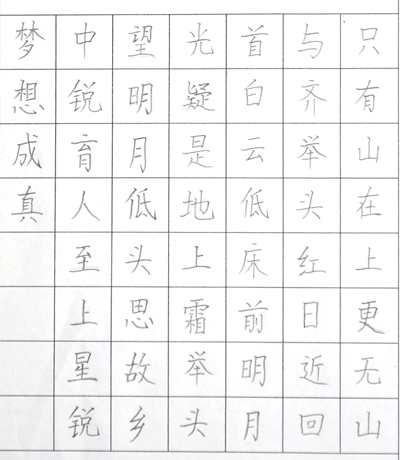 只有山在上更无山
与齐举头红日近回
首白云低床前明月
光疑是地上霜举头
望明月低头思故乡
中锐育人至上星锐
梦想成真